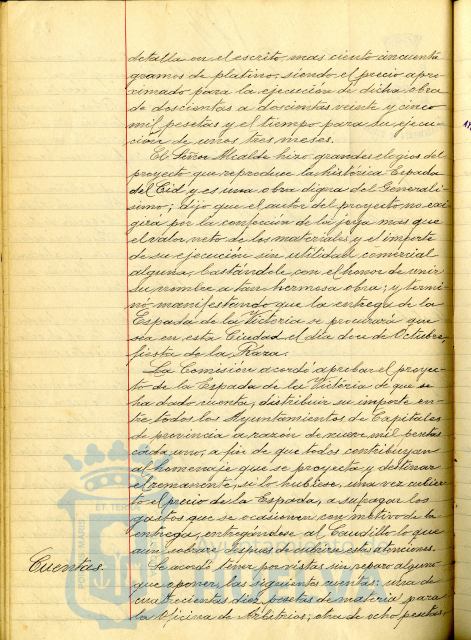 detalla en el escrito, mas ciento cincuenta
gramos de platino, siendo el precio apro-
ximado para la ejecución de dicha obra
de doscientas a doscientas veinte y cinco
mil pesetas y el tiempo para su ejecu-
ción de unos tres meses.
El Señor Alcalde hizo grandes elogios del
proyecto que reproduce la histórica Espada
del Cid y es una obra digna del Generalí-
simo; dijo que el autor del proyecto no exi-
girá por la confección de la joya mas que
el valor neto de los materiales y el importe
de su ejecución sin utilidad comercial
alguna, bastándole con el honor de unir
su nombre a tan hermosa obra; y termi-
nó manifestando que la entrega de la
Espada de la Victoria se procurará que
sea en esta Ciudad el día doce de Octubre,
fiesta de la Raza.
La Comisión acordó aprobar el proyec-
to de la Espada de la Victoria de que se
ha dado cuenta, distribuir su importe en-
tre todos los Ayuntamientos de Capitales
de provincia a razón de nueve mil pesetas
cada uno, a fin de que todos contribuyan
al homenaje que se proyecta y destinar
el remanente, si lo hubiese, una vez cubier-
to el precio de la Espada, a sufragar los
gastos que se ocasionen con motivo de la
entrega, entregándose al Caudillo lo que
aún sobrare después de cubrir estas atenciones.
Cuentas. Se acordó tener por vistas sin reparo alguno
que oponer, las siguientes cuentas: una de
cuatrocientas diez pesetas de material para
la Oficina de Arbitrios; otra de ocho pesetas,